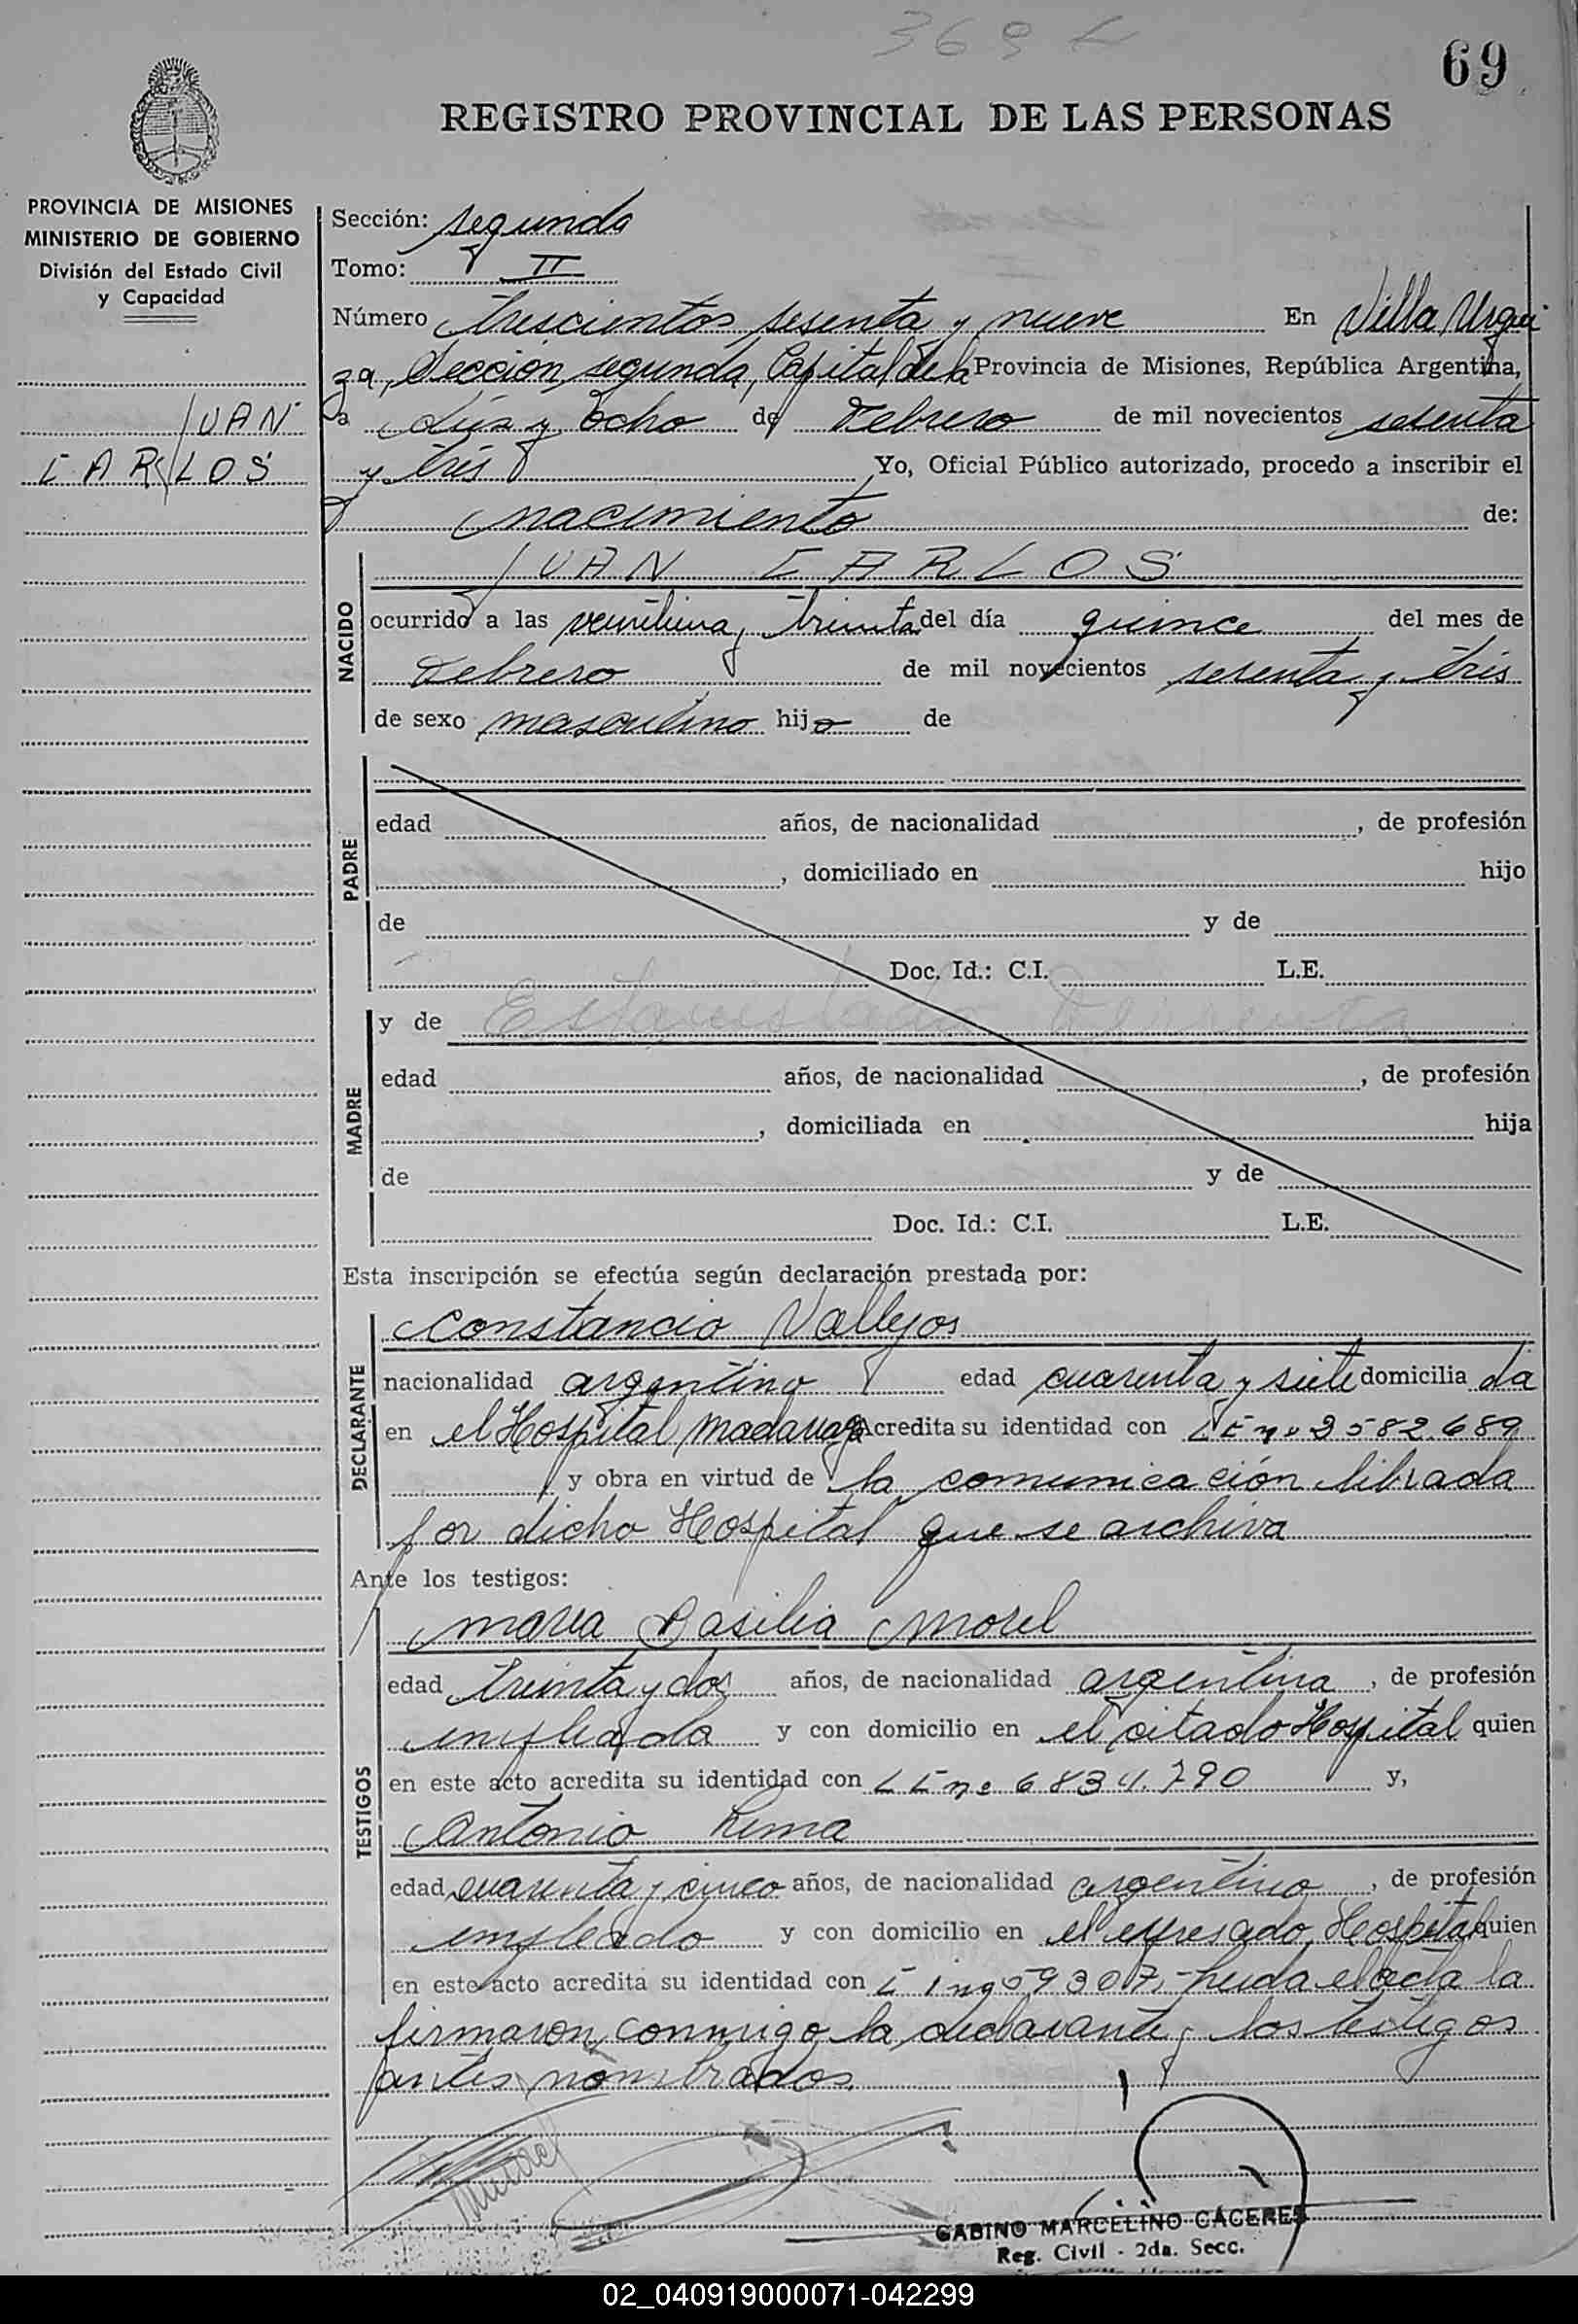 369
69
REGISTRO PROVINCIAL DE LAS PERSONAS
PROVINCIA DE MISIONES
MINISTERIO DE GOBIERNO
División del Estado Civil
y Capacidad
JUAN
CARLOS
Sección: segunda
Tomo: II
Número trescientos sesenta y nueve En Villa Urqui
za, Sección segunda, Capital de la Provincia de Misiones, República Argentina,
a dies y ocho de Febrero de mil novecientos sesenta
y tres Yo, Oficial Público autorizado, procedo a inscribir el
nacimiento de:
NACIDO
JUAN CARLOS
ocurrido a las veintiuna y treinta del día quince del mes de
Febrero de mil novecientos sesenta y tres
de sexo masculino hijo de
PADRE
edad años, de nacionalidad , de profesión
, domiciliado en hijo
de y de
Doc. Id.: C.I. L.E.
MADRE
y de
edad años, de nacionalidad , de profesión
, domiciliada en hija
de y de
Doc. Id.: C.I. L.E.
Esta inscripción se efectúa según declaración prestada por:
DECLARANTE
Constancio Vallejos
nacionalidad argentino edad cuarenta y siete domicilia da
en el Hospital Madariaga Acredita su identidad con LE no 2582.689
y obra en virtud de la comunicación librada
por dicho Hospital que se archiva
Ante los testigos:
TESTIGOS
Maria Basilia Morel
edad treinta y dos años, de nacionalidad argentina, de profesión
empleada y con domicilio en el citado Hospital quien
en este acto acredita su identidad con LE no 6834.790 y,
Antonio Lima
edad cuarenta y cinco años, de nacionalidad argentino, de profesión
empleado y con domicilio en el expresado Hospital quien
en este acto acredita su identidad con acta la
firmaron conmigo la declarante y los testigos
antes nombrados.
GABINO MARCELINO CACERES
Reg. Civil - 2da. Secc.
02_040919000071-042299